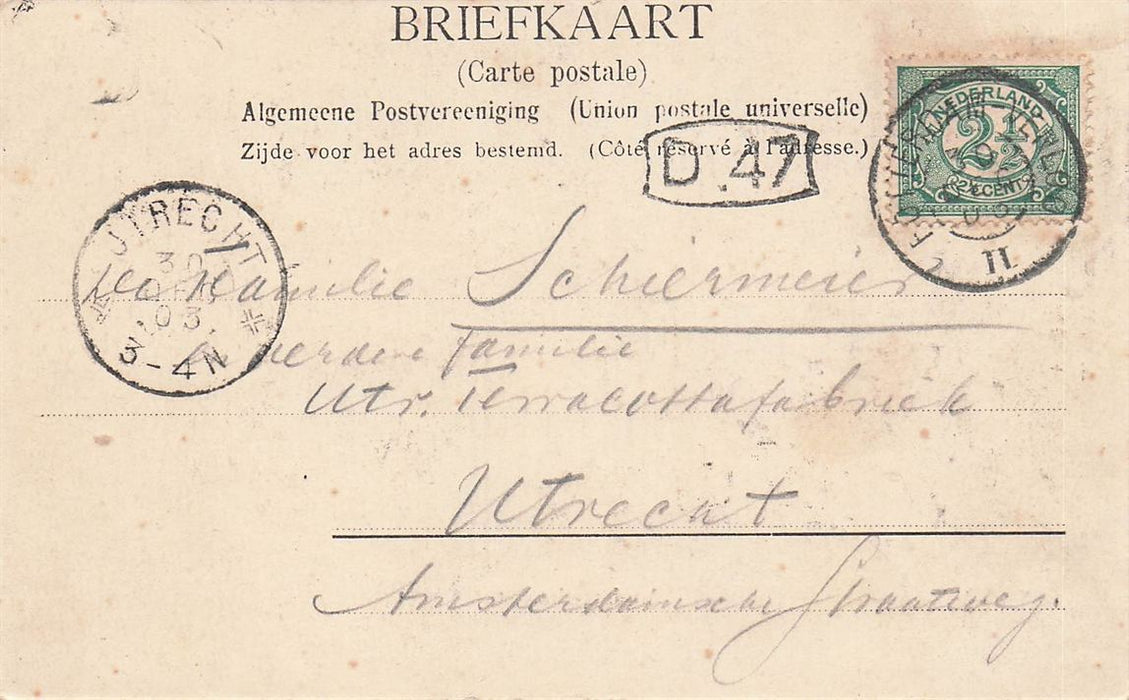 BRIEFKAART
(Carte postale)
Algemeene Postvereeniging (Union postale universelle)
Zijde voor het adres bestemd. (Côté réservé à l'adresse.)
NEDERLAND
2½
2½ CENT
II
D.47
UTRECHT
30
03
3-4N
De Familie Schiermeier
en verdere familie
Utr. Terracottafabriek
Utrecht
Amsterdamsche Straatweg.